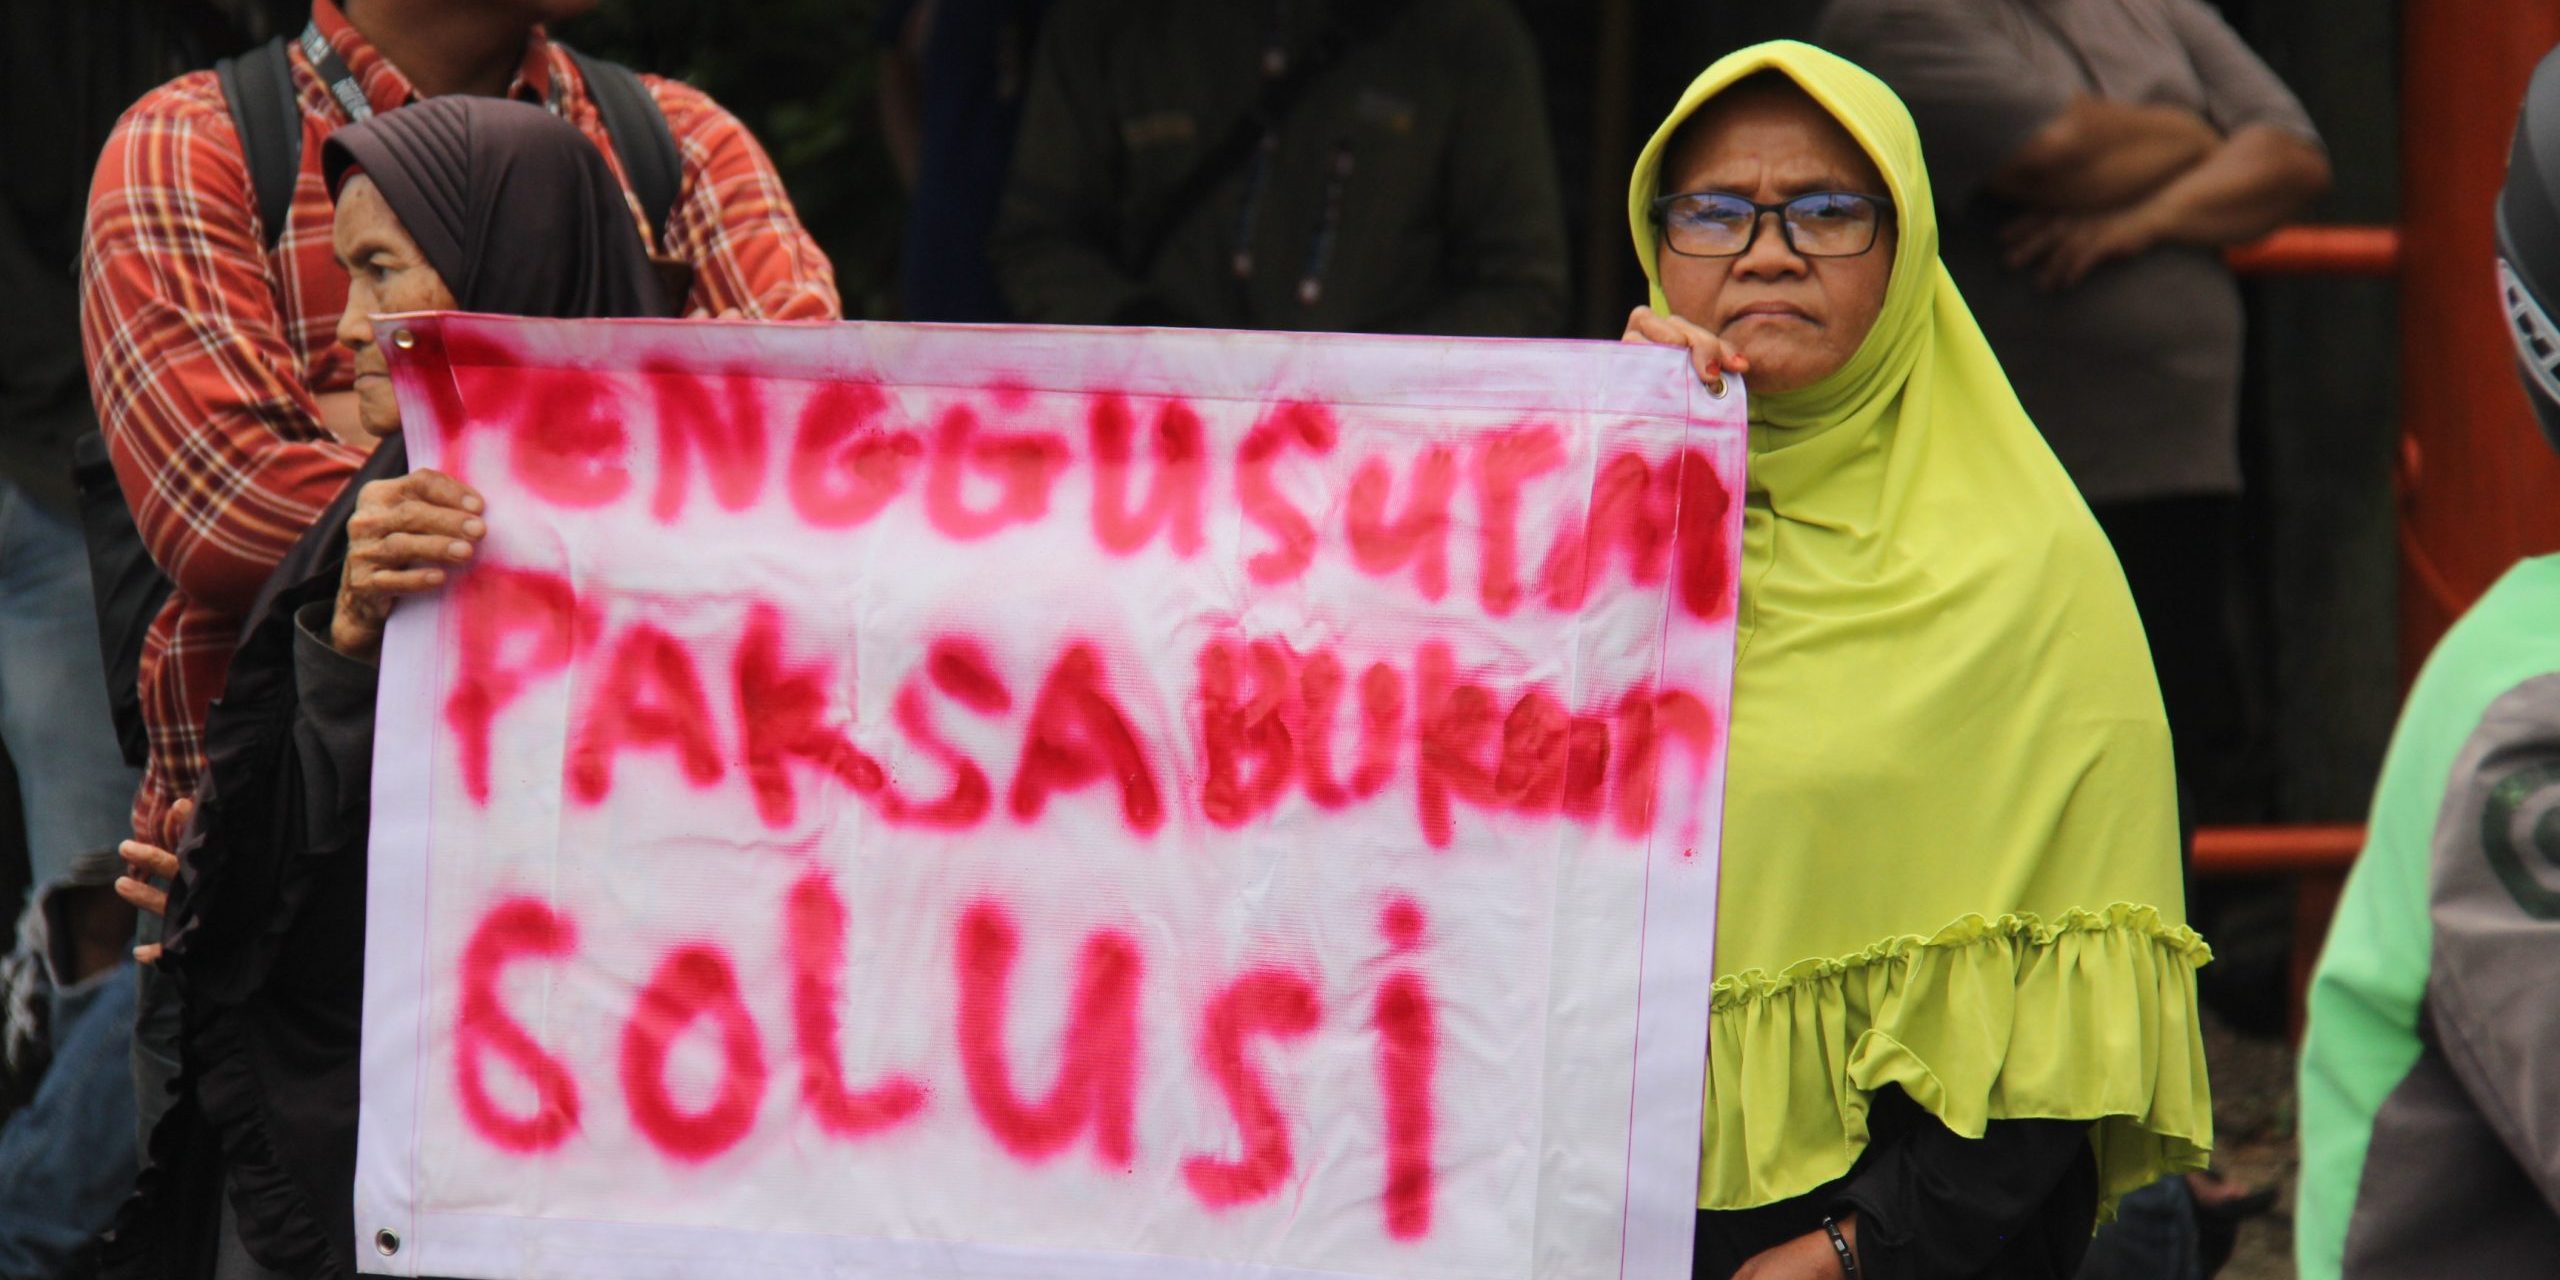 PENGGUSURAN
PAKSA BUKAN
SOLUSi